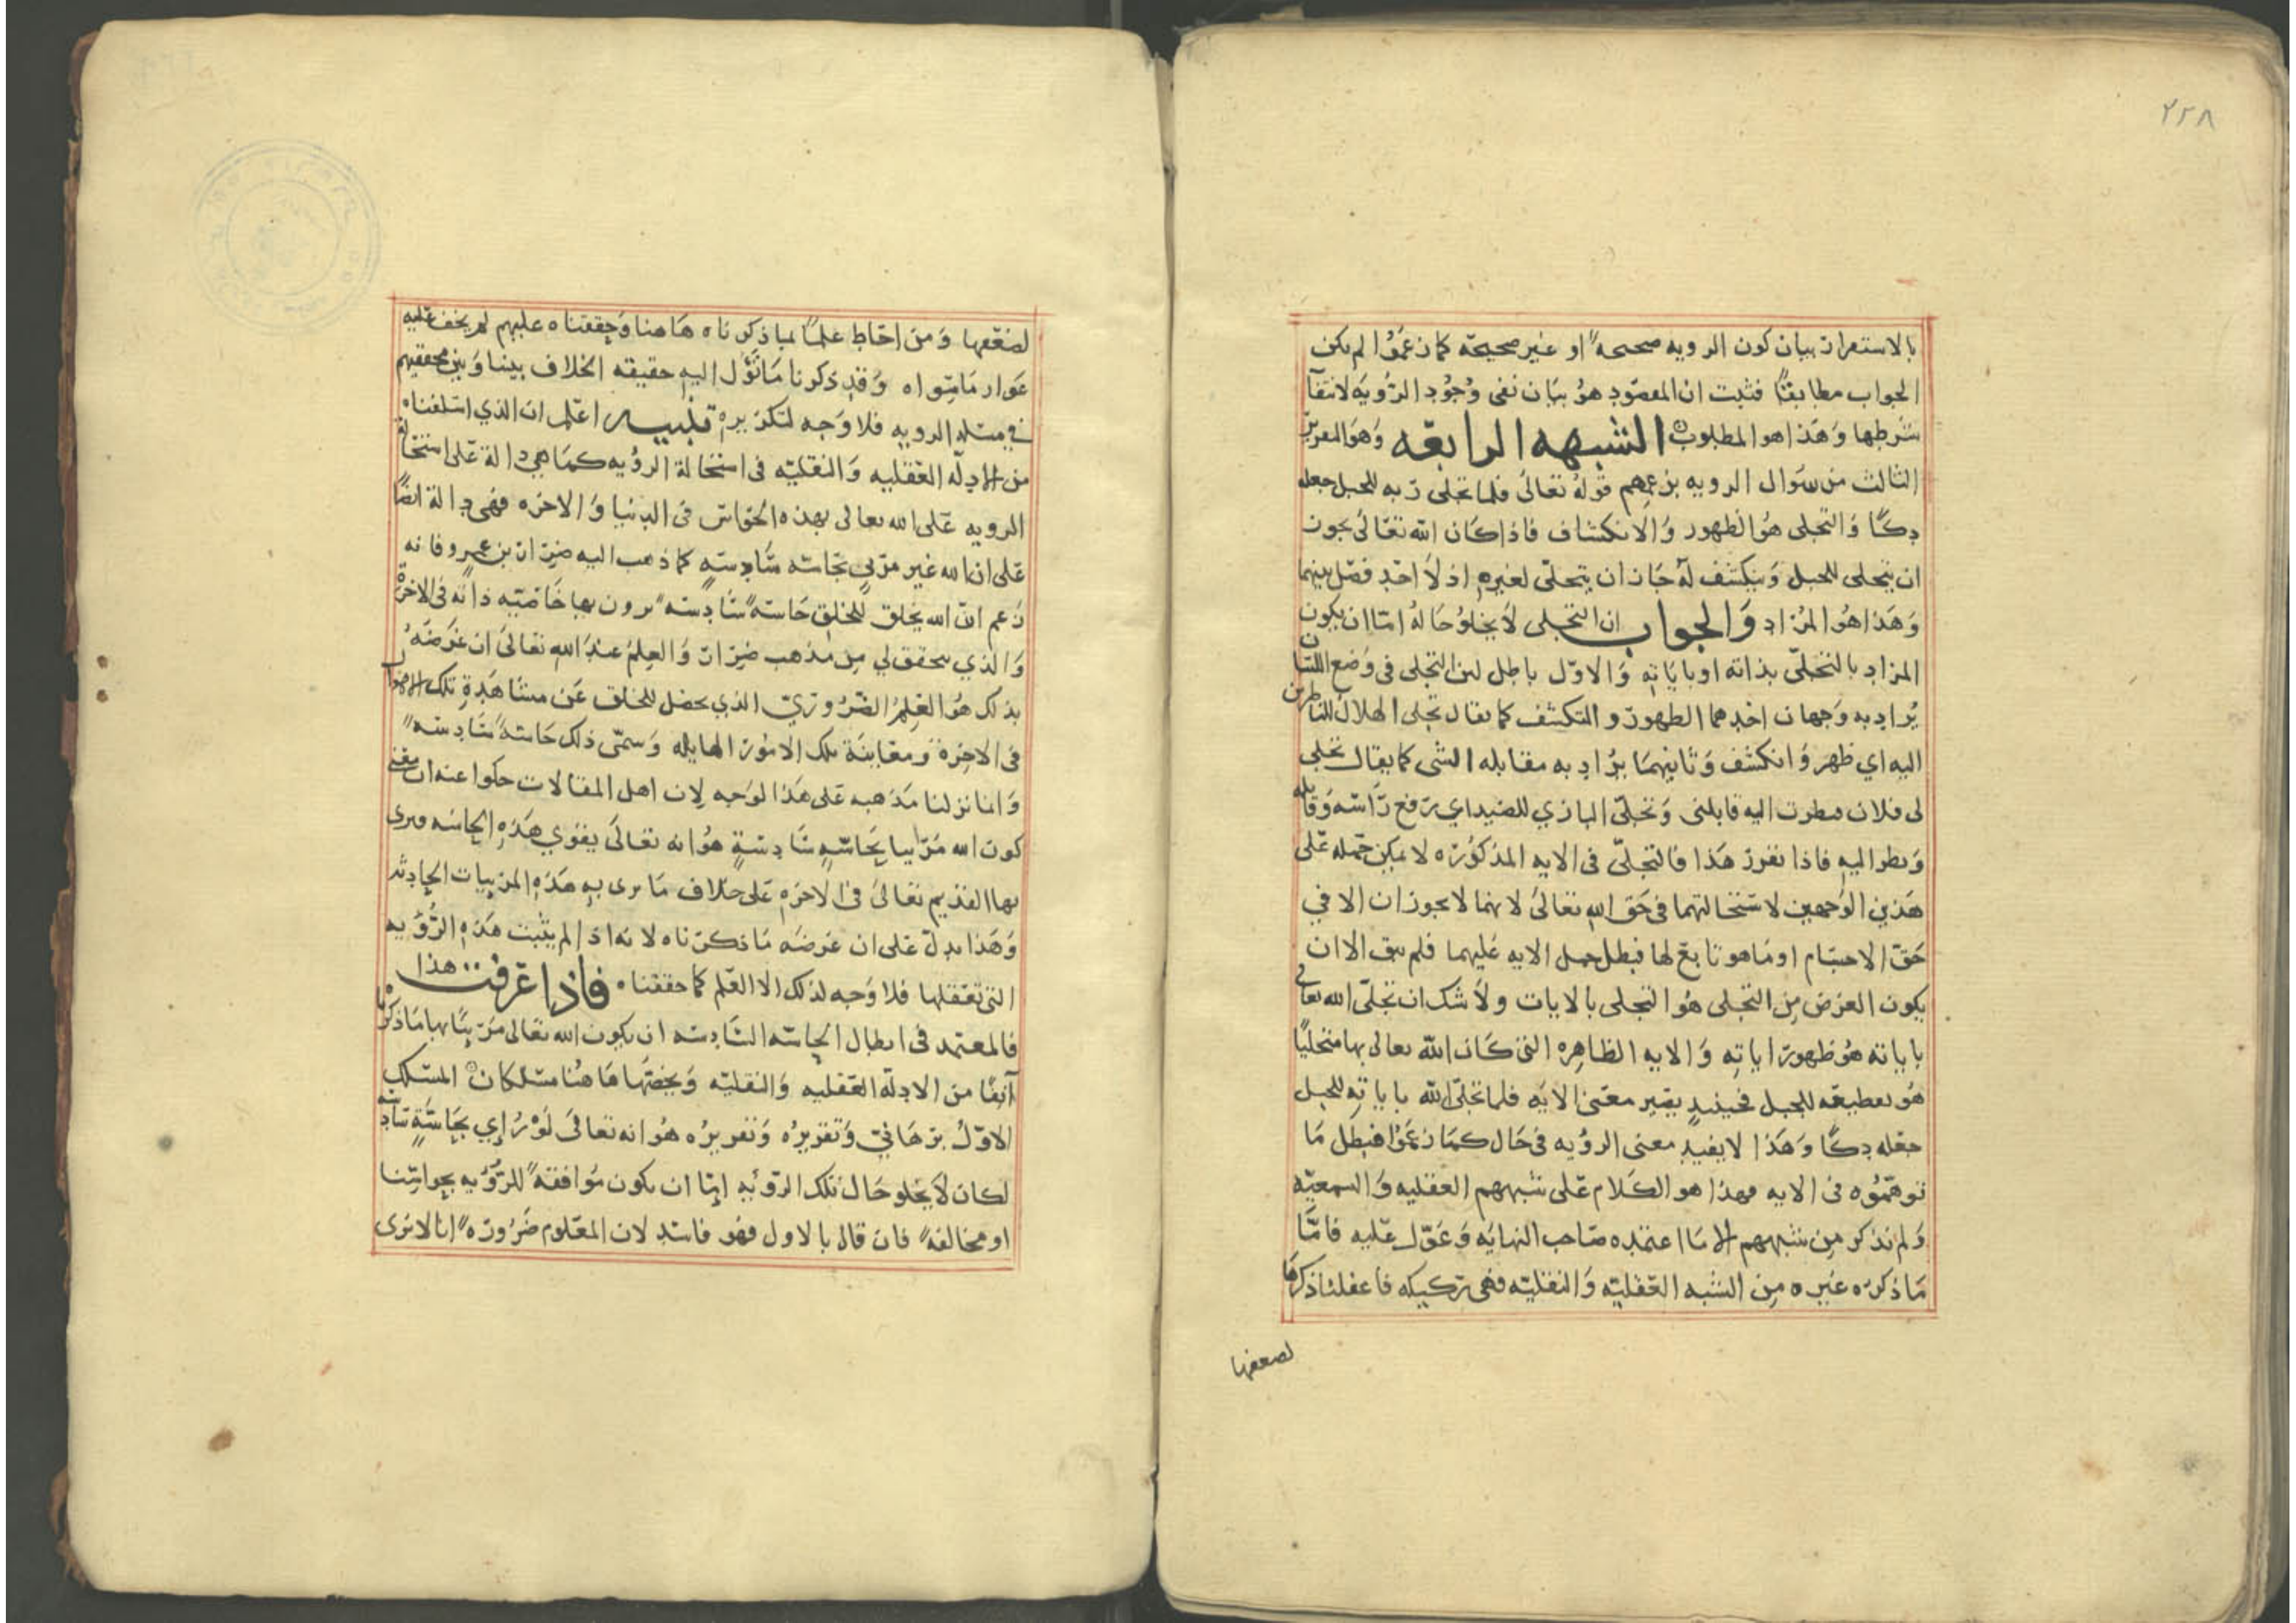 ٢٢٨
بالاستقرار بيان كون الرويه صحيحة او غير صحيحة كما زعموا لم يكن
الجواب مطابقًا فثبت ان المقصود هو بيان نفى وجود الرؤية لانتفآ
شرطها وهذا هو المطلوب الشبهه الرابعه وهو المعزيز
الثالث من سوال الرويه بزعمهم قوله تعالى فلما تجلى ربه للجبل جعله
دكًا والتجلى هو الظهور والانكشاف فاذا كان الله تعالى يجوز
ان يتجلى للجبل وينكشف له جاز ان يتجلى لغيره اذ لا احد فصل بينهما
وهذا هو المراد والجواب ان التجلى لا يخلو حاله اما ان يكون
المراد بالتجلى بذاته او باياته والاول باطل لان التجلى فى وضع اللسان
يراد به وجهان احدهما الظهور والتكشف كما يقال تجلى الهلال للناظرين
اليه اي ظهر وانكشف وثانيهما يراد به مقابله الشى كما يقال تجلى
لى فلان فنظرت اليه قابلنى وتجلى البازي للصيد اي رفع راسه وقابله
ونظر اليه فاذا تقرر هذا فالتجلى فى الايه المذكوره لا يمكن حمله على
هذين الوجهين لاستحالتهما فى حق الله تعالى لانهما لا يجوزان الا في
حق الاجسام او ما هو تابع لها فبطل حمل الايه عليهما فلم يبق الا ان
يكون الغرض من التجلى هو التجلى بالايات ولا شك ان تجلى الله تعالى
باياته هو ظهور اياته والايه الظاهره التى كان الله تعالى بها متجليًا
هو تقطيعه للجبل فحينئذ يصير معنى الايه فلما تجلى الله باياته للجبل
جعله دكًا وهذا لا يفيد معنى الرؤيه فى حال كما زعموا فبطل ما
توهموه فى الايه فهذا هو الكلام على شبههم العقليه والسمعيه
ولم نذكر من شبههم الا ما اعتمده صاحب النهايه وعول عليه فاما
ما ذكره غيره من الشبه العقليه والنقليه فهى ركيكه فاغفلنا ذكرها
لضعفها
لضعفها ومن احاط علمًا بما ذكرناه هاهنا وحققناه عليهم لم يخف عليه
عوار ما سواه وقد ذكرنا ما تؤل اليه حقيقه الخلاف بيننا وبين محققيهم
في مسئله الرويه فلا وجه لتكريره تنبيه اعلم ان الذي اسلفناه
من الادله العقليه والنقليه فى استحالة الرؤيه كما هي دالة على استحالة
الرويه على الله تعالى بهذه الحواس فى الدنيا والاخره فهى دالة ايضًا
على ان الله غير مرئي بحاسه سادسه كما ذهب اليه ضرار بن عمرو فانه
زعم ان الله يخلق للخلق حاسة سادسه يرون بها خاصيه ذاته فى الاخرة
والذي يتحقق لي من مذهب ضرار والعلم عند الله تعالى ان غرضه
بذلك هو العلم الضروري الذي يحصل للخلق عن مشاهدة تلك الاهوال
فى الاخرة ومعاينة تلك الامور الهايله وسمى ذلك حاسة سادسه
وانما نزلنا مذهبه على هذا الوجه لان اهل المقالات حكوا عنه ان معنى
كون الله مرئيا بحاسة سادسة هو انه تعالى يقوي هذه الحاسه فيرى
بها القديم تعالى فى الاخره على خلاف ما يرى به هذه المرئيات الحادثه
وهذا يدل على ان غرضه ما ذكرناه لانه اذا لم يثبت هذه الرؤيه
التى تعقلها فلا وجه لذلك الا العلم كما حققناه فاذا عرفت هذا
فالمعتمد فى ابطال الحاسه السادسه ان يكون الله تعالى مرئيًا بها ما ذكرناه
آنفًا من الادلة العقليه والنقليه ويخصها هاهنا مسلكان المسلك
الاول برهاني وتقريره وتقريره هو انه تعالى لو رُاي بحاسة سادسة
لكان لا يخلو حال تلك الرؤيه اما ان يكون موافقة للرؤيه بحواسنا
او مخالفة فان قال بالاول فهو فاسد لان المعلوم ضرورة انا لا نرى